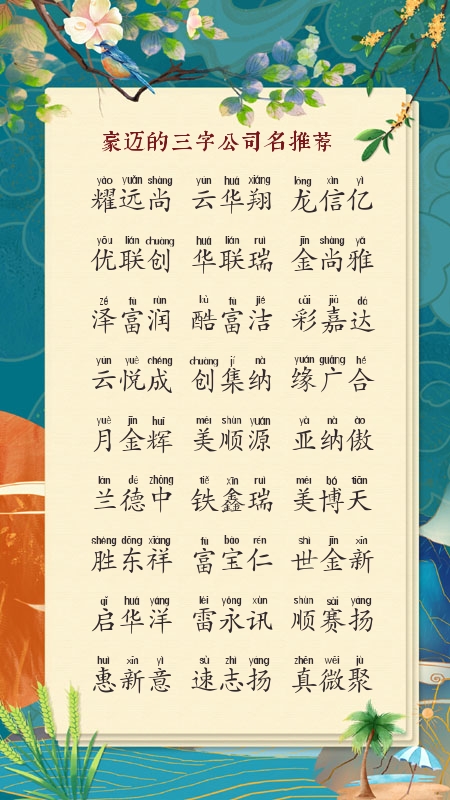 豪迈的三字公司名推荐
yào yuǎn shàng yún huá xiáng lóng xìn yì
耀远尚 云华翔 龙信亿
yōu lián chuàng huá lián ruì jīn shàng yǎ
优联创 华联瑞 金尚雅
zé fù rùn kù fù jié cǎi jiā dá
泽富润 酷富洁 彩嘉达
yún yuè chéng chuàng jí nà yuán guǎng hé
云悦成 创集纳 缘广合
yuè jīn huī měi shùn yuán yà nà ào
月金辉 美顺源 亚纳傲
lán dé zhōng tiě xīn ruì měi bó tiān
兰德中 铁鑫瑞 美博天
shèng dōng xiáng fù bǎo rén shì jīn xīn
胜东祥 富宝仁 世金新
qǐ huá yáng léi yǒng xùn shùn sài yáng
启华洋 雷永讯 顺赛扬
huì xīn yì sù zhì yáng zhēn wēi jù
惠新意 速志扬 真微聚